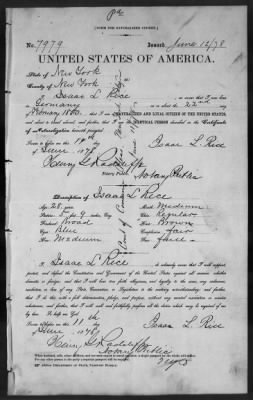 [FORM FOR NATURALIZED CITIZEN.]
No. 7979 Issued June 12/78
UNITED STATES OF AMERICA.
State of New York
County of New York
I, Isaac L Rice, do swear that I was
born in Germany on or about the 22nd day
of February 1850, that I am a NATURALIZED AND LOYAL CITIZEN OF THE UNITED STATES,
and about to travel abroad; and further, that I am the IDENTICAL PERSON described in the Certificate
of Naturalization herewith presented.
Sworn to before me this 11th day
of June 1878 Isaac L. Rice
Notary Public.
Description of Isaac L Rice
Age: 28 years
Stature: 5 feet 9 inches, Eng.
Forehead: Broad
Eyes: Blue
Nose: Medium
Mouth: Medium
Chin: Regular
Hair: Brown
Complexion: Fair
Face:
I, Isaac L Rice do solemnly swear that I will support,
protect, and defend the Constitution and Government of the United States against all enemies, whether
domestic or foreign; and that I will bear true faith, allegiance, and loyalty to the same, any ordinance,
resolution, or law of any State, Convention, or Legislature to the contrary notwithstanding; and further,
that I do this with a full determination, pledge, and purpose, without any mental reservation or evasion
whatsoever; and further, that I will well and faithfully perform all the duties which may be required of me
by law. So help me God.
Sworn to before me this 11th day
of June 1878 Isaac L. Rice
Notary Public